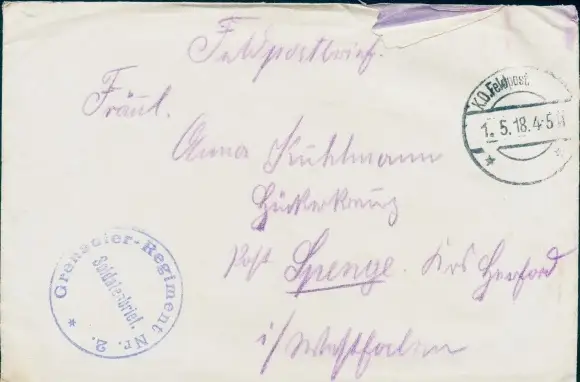 Feldpostbrief.
Fräul.
Anna Kuhlmann
Hückerkreuz
Post Spenge. Krs Herford
i/Westfalen
K.D. Feldpost
1. 5. 18. 4-5 N
Grenadier-Regiment Nr. 2. *
Soldatenbrief.